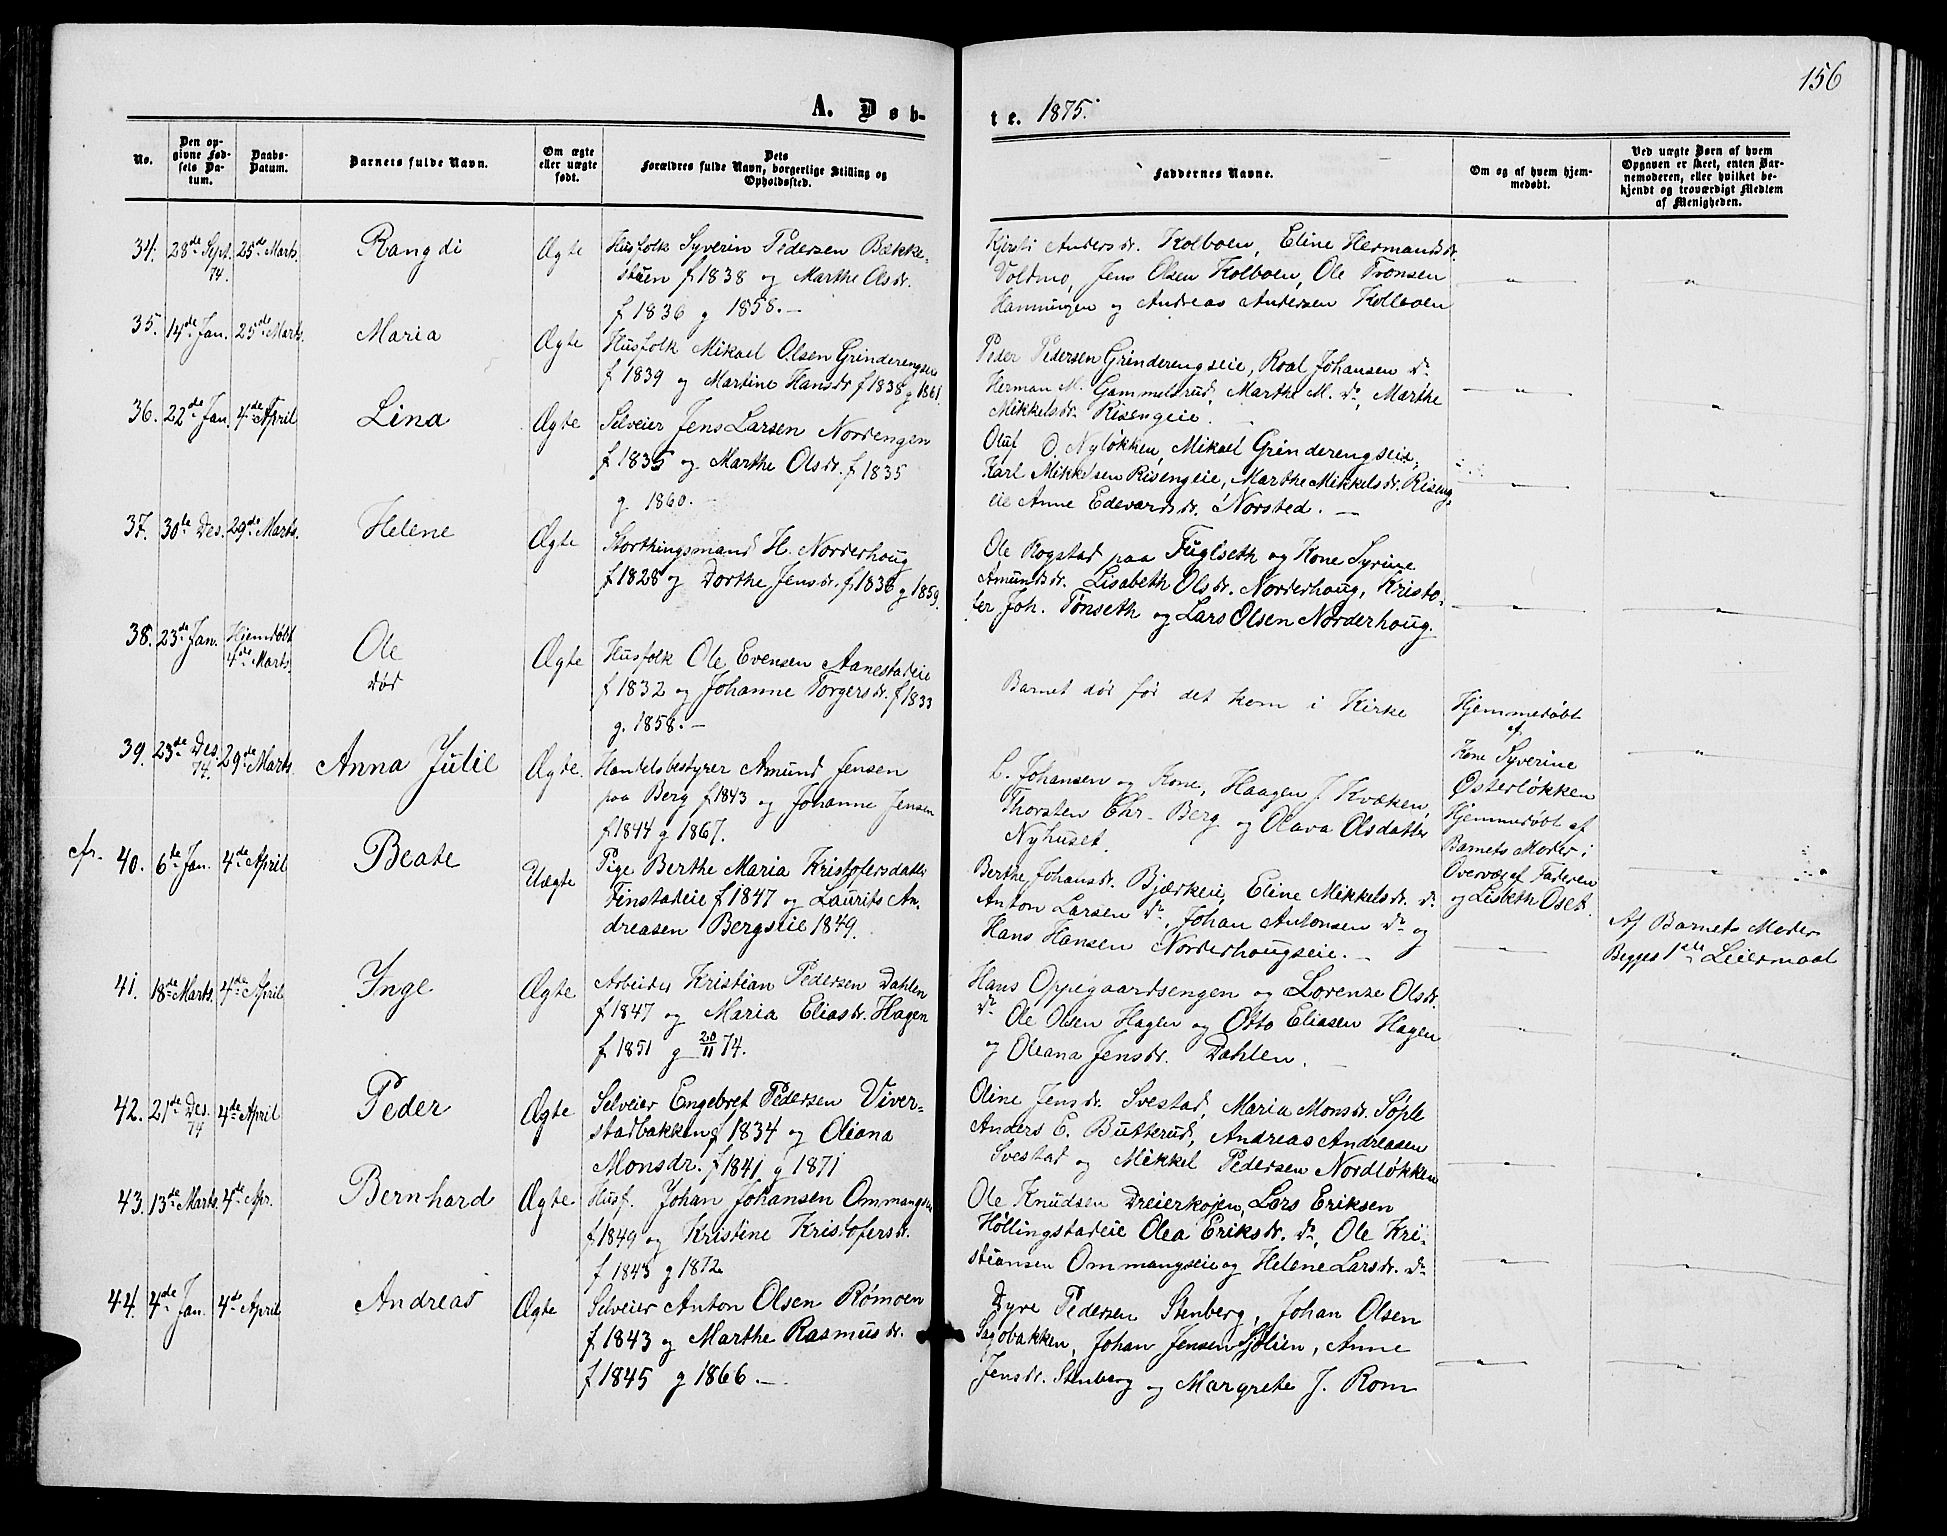 156
A. Døb-
te. 1875.
No.
Den op-
givne Fød-
sels Da-
tum.
Daabs-
Datum.
Barnets fulde Navn.
Om ægte
eller uægte
født.
Dets
Forældres fulde Navn, borgerlige Stilling og
Opholdssted.
Faddernes Navne.
Om og af hvem hjem-
medøbt.
Ved uægte Børn af hvem
Opgaven er skeet, enten Bar-
nemoderen, eller hvilket be-
kjendt og troværdigt Medlem
af Menigheden.
34. 28de Sept. 74. 25de Marts. Rangdi Ægte
Husfolk Syverin Pedersen Bække-
stuen f 1838 og Marthe Olsdr.
f 1836 g 1858. —
Kjersti Andersdr. Kolboen, Eline Hermandsdr.
Voldmo, Jens Olsen Kolboen, Ole Tronsen
Hanningen og Andreas Andersen Kolboen
35. 14de Jan. 25de Marts. Maria Ægte
Husfolk Mikael Olsen Grinderengen
f 1839 og Martine Hansdr f 1838 g 1861.
Peder Pedersen Grinderengseie, Roal Johansen do
Herman M. Gammelsrud, Marthe M. do, Marthe
Mikkelsdr. Risengeie.
36. 22de Jan. 4de April Lina Ægte
Selveier Jens Larsen Nordengen
f 1835 og Marthe Olsdr. f 1835
g 1860.
Oluf O. Nyløkken, Mikael Grinderengseie,
Karl Mikkelsen Risengeie, Marthe Mikkelsdr. Riseng-
eie Anne Edevardsdr. Norsted. —
37. 30te Des. 29de Marts. Helene Ægte
Storthingsmand H. Norderhoug
f 1828 og Dorthe Jensdr. f 1836 g 1859.
Ole Rogstad paa Fuglseth og Kone Syrine
Amundsdr. Lisabeth Olsdr. Norderhoug, Kristo-
fer Joh. Tønseth og Lars Olsen Norderhoug.
38. 23de Jan. Hjemdøbt
4de Marts. Ole
Død Ægte
Husfolk Ole Evensen Aanestadeie
f 1832 og Johanne Torgersdr. f 1833
g. 1858. —
Barnet dør før det kom i Kirke
Hjemmedøbt
af
Kone Syverine
Østerløkken
39. 23de Des 74. 29de Marts. Anna Julie Ægte.
Handelsbestyrer Amund Jensen
paa Berg f 1843 og Johanne Jensen
f 1844 g 1867.
L. Johansen og Kone, Haagen J. Kvæken,
Thorsten Chr. Berg og Olava Olsdatter
Nyhuset.
Hjemmedøbt af
Barnets Moder i
Overvær af Faderen
og Lisbeth Oset.
cfr. 40. 6te Jan. 4de April Beate Uægte
Pige Berthe Maria Kristofersdatter
Finstadeie f 1847 og Laurits An-
dreasen Bergseie 1849.
Berthe Johansdr. Bjærkeie, Eline Mikkelsdr. do
Anton Larsen do Johan Antonsen do og
Hans Hansen Norderhougseie. —
Af Barnets Moder
Begges 1ste Leiermaal
41. 18de Marts. 4de April Inge Ægte
Arbeider Kristian Pedersen Dahlen
f 1847 og Maria Eliasdr. Hagen
f 1851 g 20/11 74.
Hans Oppegaardsengen og Lorenze Olsdr.
do Ole Olsen Hagen og Otto Eliasen Hagen
og Oleana Jensdr. Dahlen.
42. 21de Des. 74 4de April Peder Ægte
Selveier Engebret Pedersen Viver-
stadbakken f 1834 og Oliana
Monsdr. f 1841 g 1871
Oline Jensdr. Svestad, Maria Monsdr. Sòple
Anders E. Butterud, Andreas Andreasen
Svestad og Mikkel Pedersen Nordløkken
43. 13de Marts. 4de Apr. Bernhard Ægte
Husf. Johan Johansen Ommangseie
f 1849 og Kristine Kristofersdr.
f 1843 g 1872
Ole Knudsen Dreierkojen, Lars Eriksen
Høllingstadeie Olea Eriksdr. do, Ole Kri-
stiansen Ommangseie og Helene Larsdr. do
44. 4de Jan. 4de April Andreas Ægte
Selveier Anton Olsen Rømoen
f 1843 og Marthe Rasmusdr.
f 1845 g 1866. —
Dyre Pedersen Stenberg, Johan Olsen
Sagbakken, Johan Jensen Sjølien, Anne
Jensdr. Stenberg og Margrete J. Rom